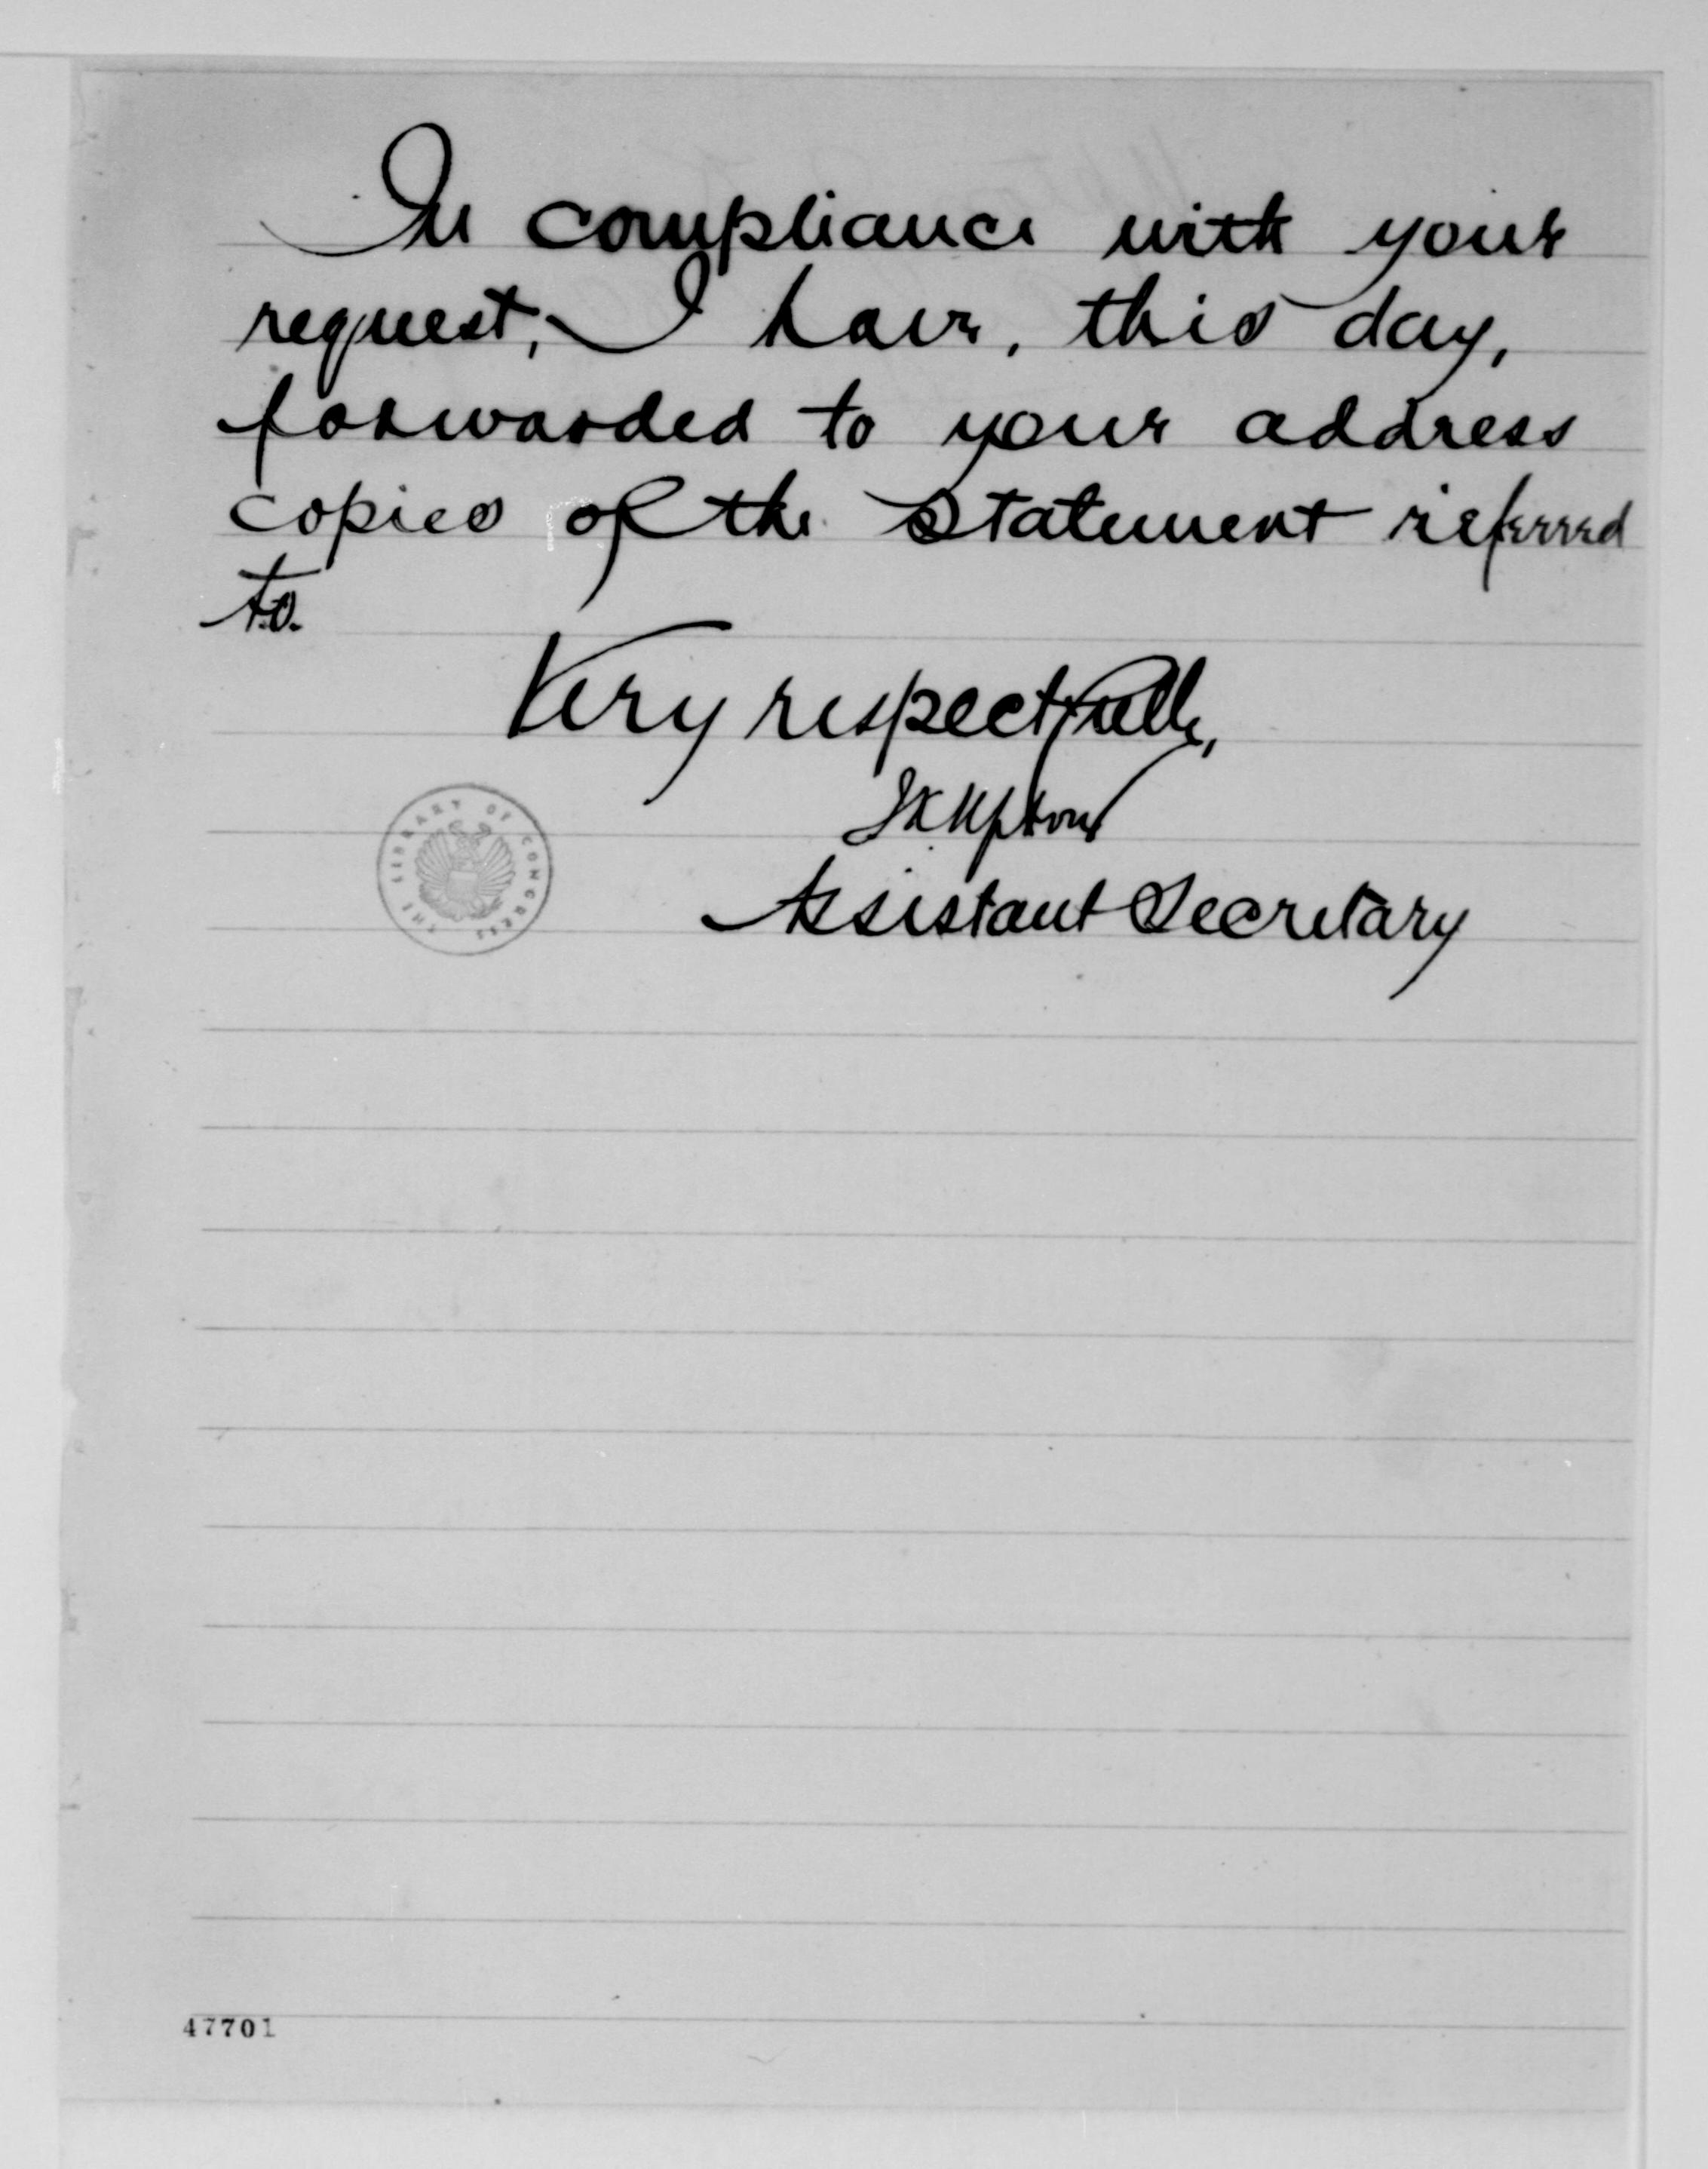 In compliance with your
request, I have, this day,
forwarded to your address
copies of the Statement referred
to.
Very respectfully,
J K Upton
Assistant Secretary
THE LIBRARY OF CONGRESS
47701